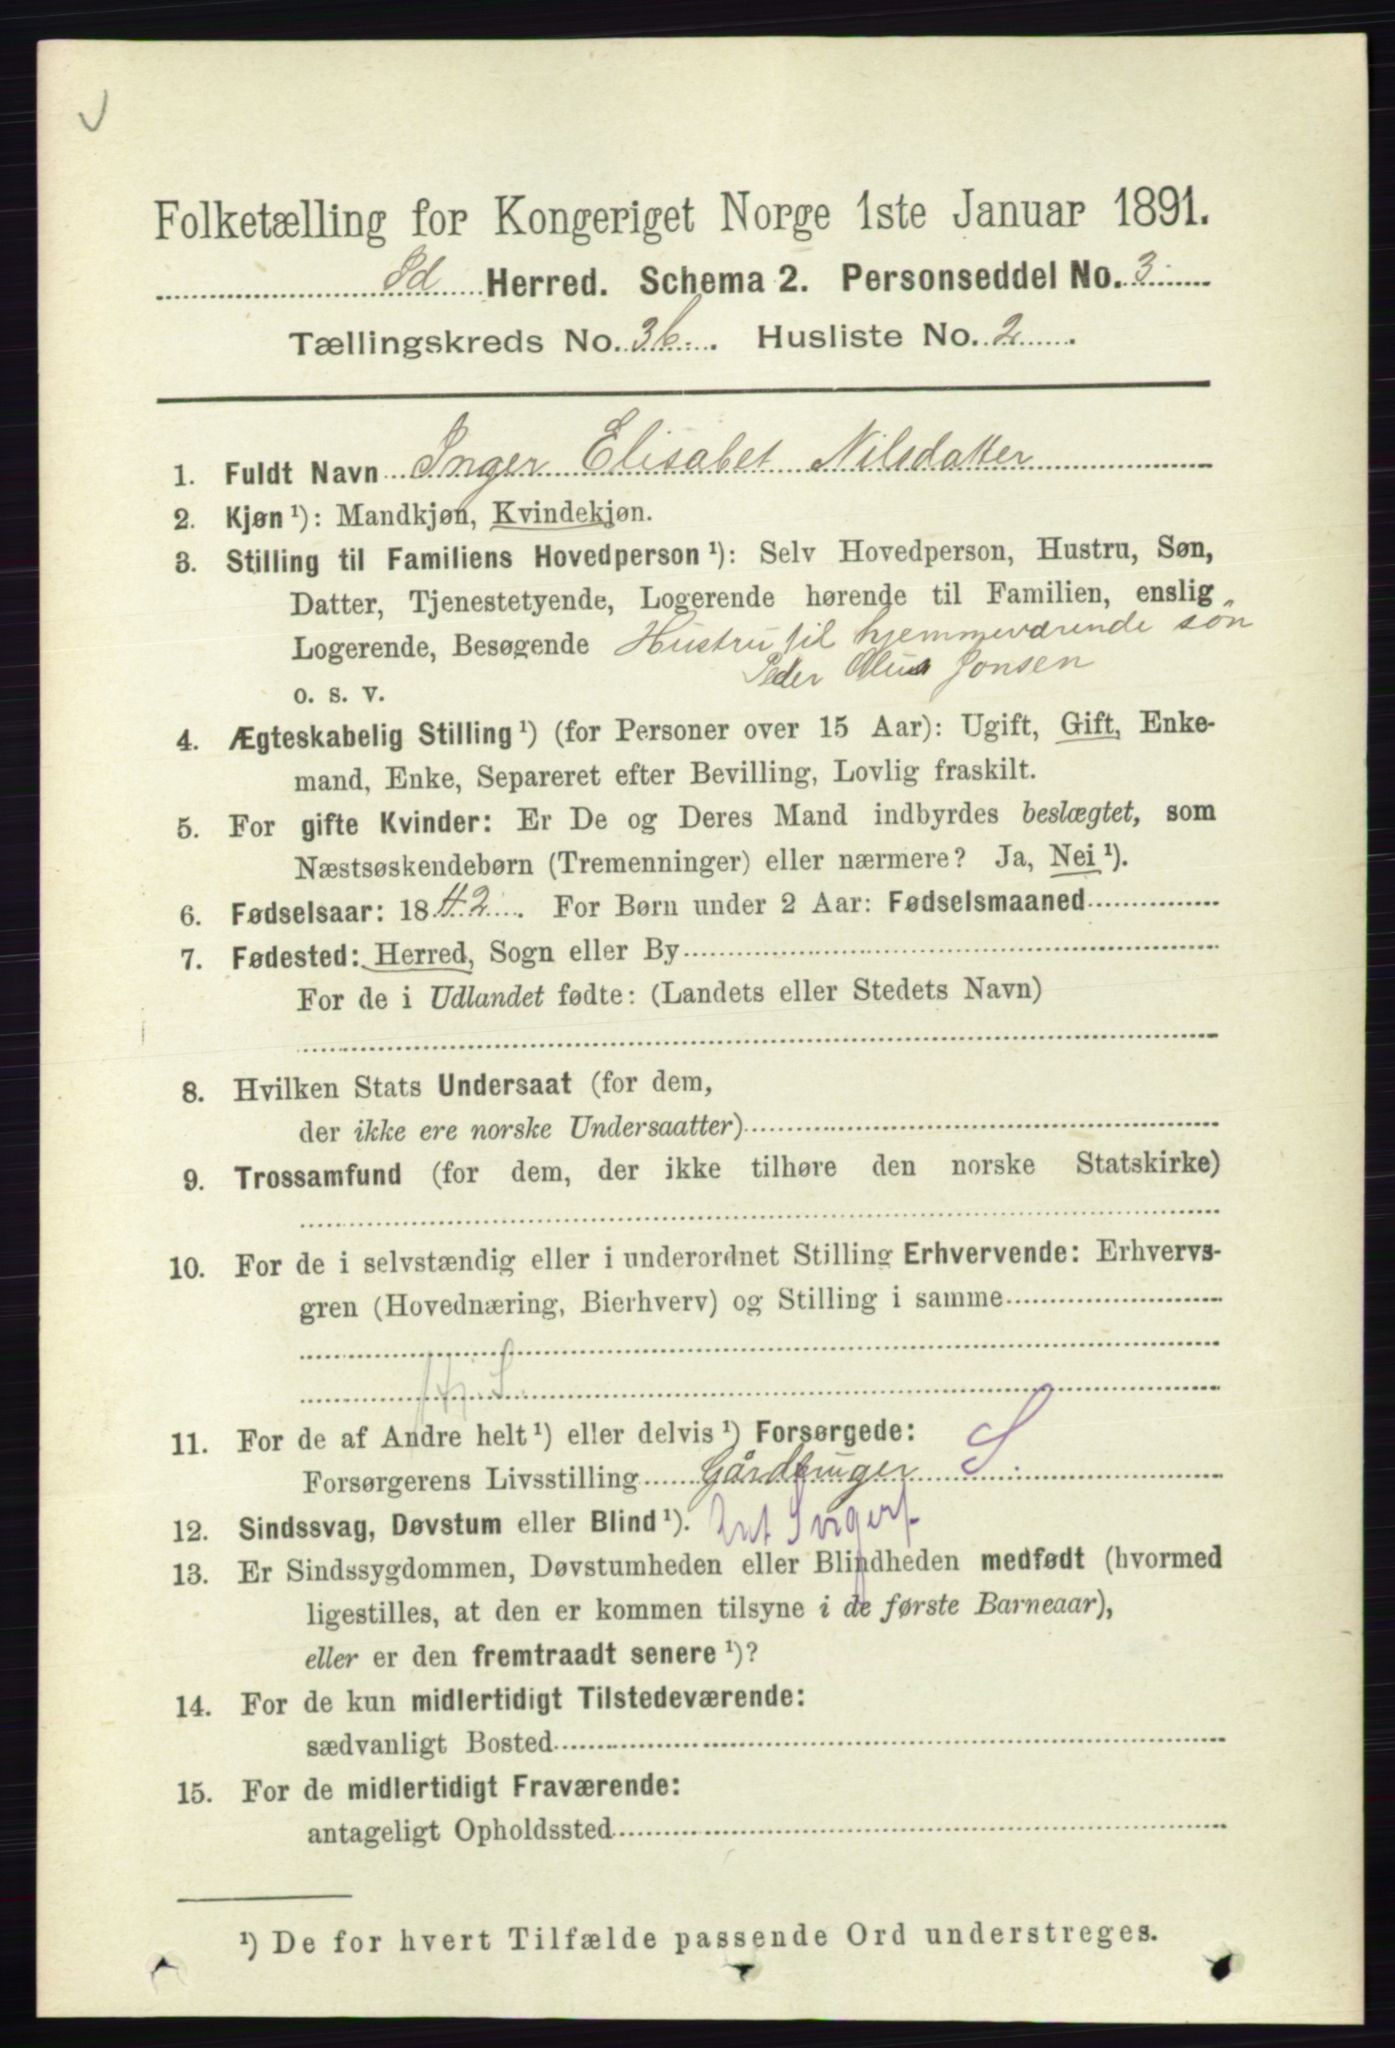 Folketælling for Kongeriget Norge 1ste Januar 1891.
Id Herred. Schema 2. Personseddel No. 3
Tællingskreds No. 3b. Husliste No. 2.
1. Fuldt Navn Inger Elisabet Nilsdatter
2. Kjøn ¹): Mandkjøn, Kvindekjøn.
3. Stilling til Familiens Hovedperson ¹): Selv Hovedperson, Hustru, Søn,
Datter, Tjenestetyende, Logerende hørende til Familien, enslig
Logerende, Besøgende Hustru til hjemmeværende søn
o. s. v. Peder Olius Jonsen
4. Ægteskabelig Stilling ¹) (for Personer over 15 Aar): Ugift, Gift, Enke-
mand, Enke, Separeret efter Bevilling, Lovlig fraskilt.
5. For gifte Kvinder: Er De og Deres Mand indbyrdes beslægtet, som
Næstsøskendebørn (Tremenninger) eller nærmere? Ja, Nei ¹).
6. Fødselsaar: 1842. For Børn under 2 Aar: Fødselsmaaned
7. Fødested: Herred, Sogn eller By
For de i Udlandet fødte: (Landets eller Stedets Navn)
8. Hvilken Stats Undersaat (for dem,
der ikke ere norske Undersaatter)
9. Trossamfund (for dem, der ikke tilhøre den norske Statskirke)
10. For de i selvstændig eller i underordnet Stilling Erhvervende: Erhvervs-
gren (Hovednæring, Bierhverv) og Stilling i samme
11. For de af Andre helt ¹) eller delvis ¹) Forsørgede: S
Forsørgerens Livsstilling Gårdbruger
12. Sindssvag, Døvstum eller Blind ¹).
13. Er Sindssygdommen, Døvstumheden eller Blindheden medfødt (hvormed
ligestilles, at den er kommen tilsyne i de første Barneaar),
eller er den fremtraadt senere ¹)?
14. For de kun midlertidigt Tilstedeværende:
sædvanligt Bosted
15. For de midlertidigt Fraværende:
antageligt Opholdssted
¹) De for hvert Tilfælde passende Ord understreges.